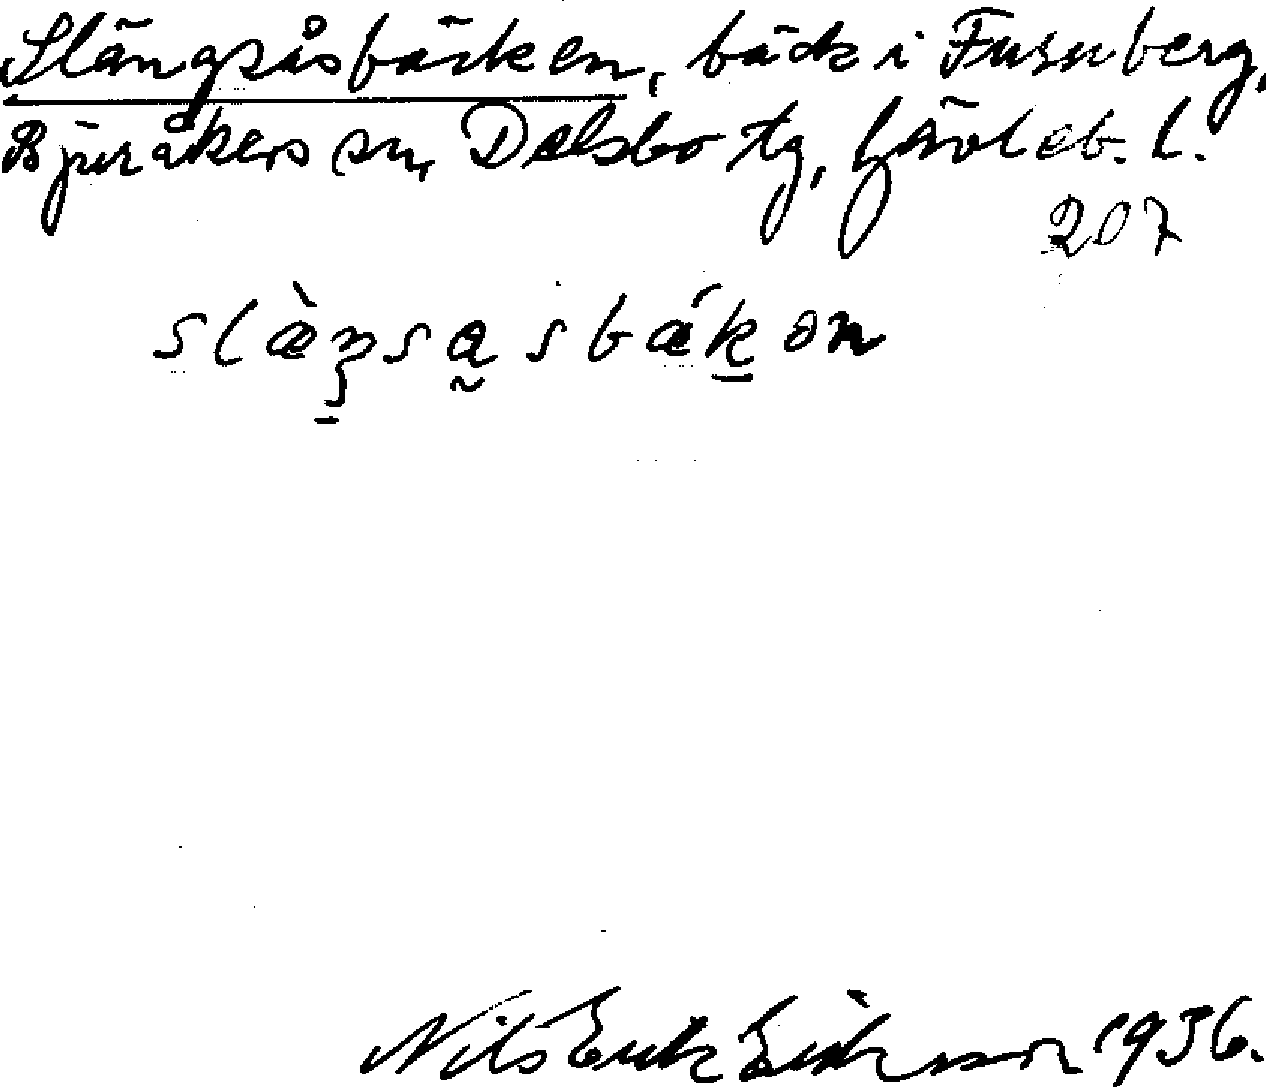 Slängsåsbäcken, bäck i Furuberg,
Bjuråkers sn, Delsbo tg, Gävleb. l.
207
Nils Erik Eriksson 1936.